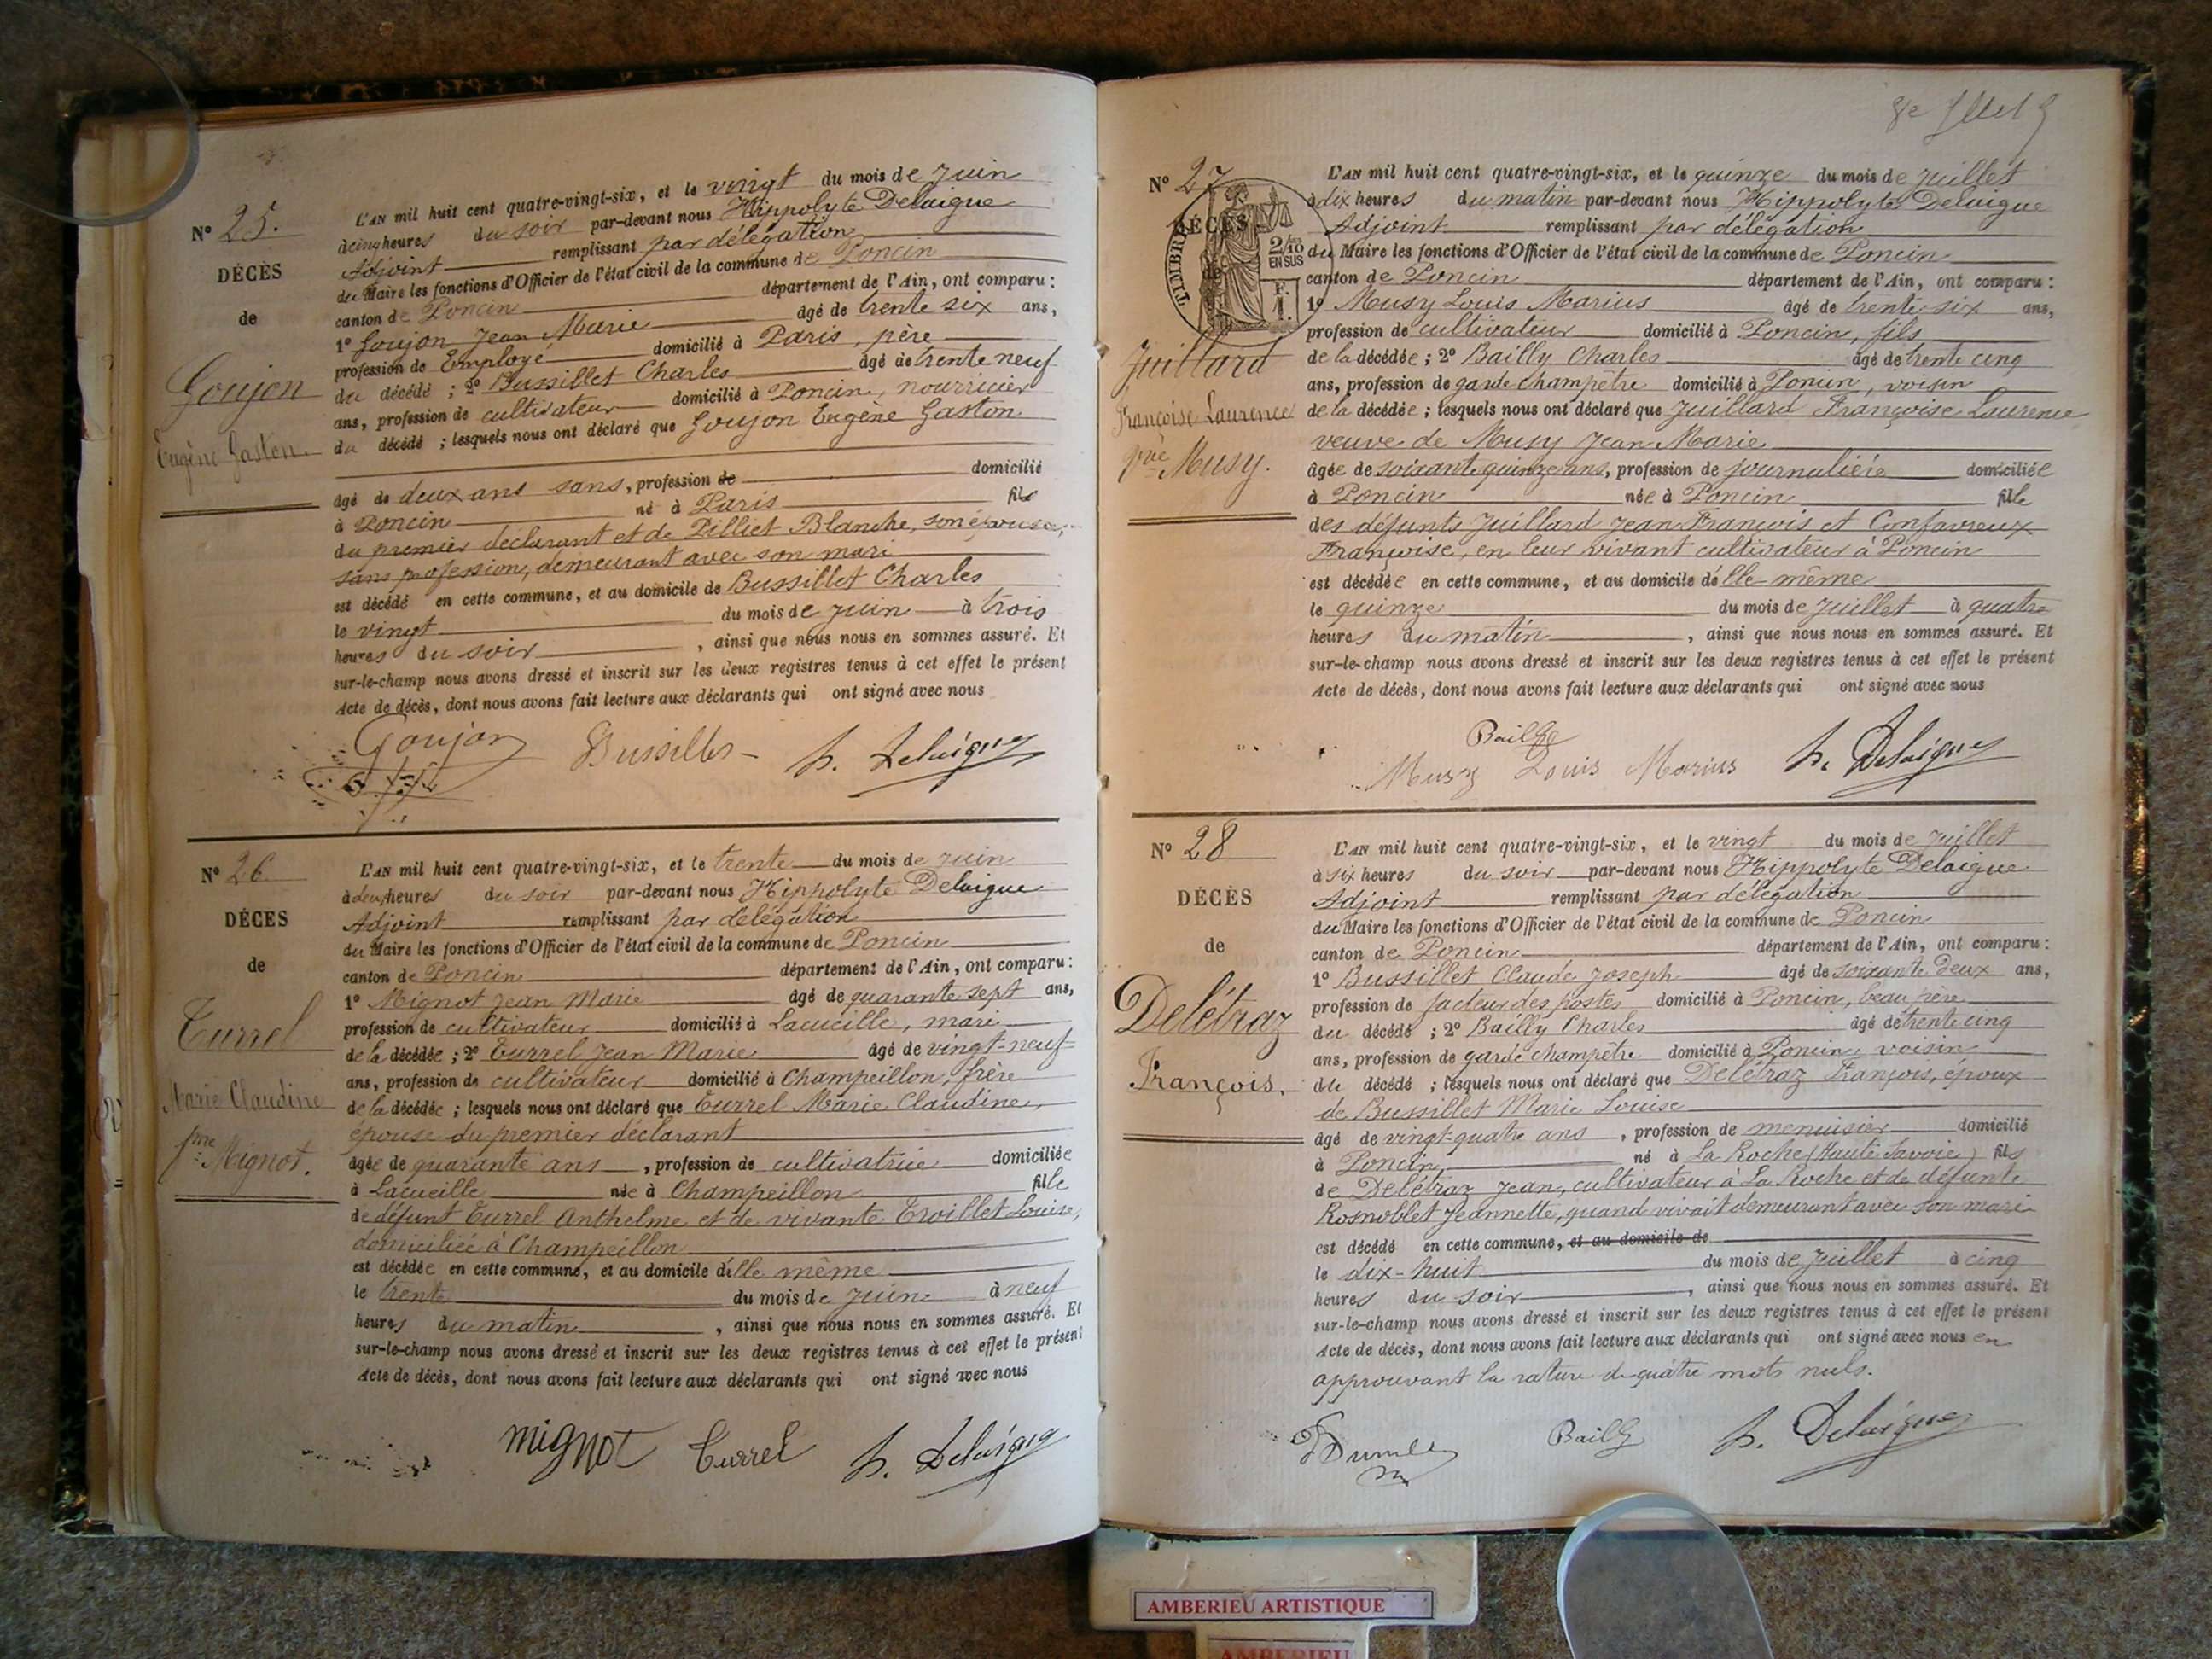 Nº 25.
DÉCÈS
de
Goujon
Eugène Gaston
L'AN mil huit cent quatre-vingt-six, et le vingt du mois de Juin
à cinq heures du soir par-devant nous Hippolyte Delaigue
Adjoint remplissant par délégation
du Maire les fonctions d'Officier de l'état civil de la commune de Poncin
canton de Poncin département de l'Ain, ont comparu :
1º Goujon Jean Marie âgé de trente six ans,
profession de Employé domicilié à Paris, père
du décédé ; 2º Bussillet Charles âgé de trente neuf
ans, profession de cultivateur domicilié à Poncin, nourricier
du décédé ; lesquels nous ont déclaré que Goujon Eugène Gaston
âgé de deux ans sans, profession de domicilié
à Poncin né à Paris fils
du premier déclarant et de Pilliet Blanche, son épouse,
sans profession, demeurant avec son mari
est décédé en cette commune, et au domicile de Bussillet Charles
le vingt du mois de Juin à trois
heures du soir, ainsi que nous nous en sommes assuré. Et
sur-le-champ nous avons dressé et inscrit sur les deux registres tenus à cet effet le présent
Acte de décès, dont nous avons fait lecture aux déclarants qui ont signé avec nous
Goujon Bussillet h. Delaigue
Nº 26
DÉCES
de
Turrel
Marie Claudine
fme Mignot.
L'AN mil huit cent quatre-vingt-six, et le trente du mois de Juin
à deux heures du soir par-devant nous Hippolyte Delaigue
Adjoint remplissant par délégation
du Maire les fonctions d'Officier de l'état civil de la commune de Poncin
canton de Poncin département de l'Ain, ont comparu :
1º Mignot Jean Marie âgé de quarante sept ans,
profession de cultivateur domicilié à Lacueille, mari
de la décédée ; 2º Turrel Jean Marie âgé de vingt-neuf
ans, profession de cultivateur domicilié à Champeillon, frère
de la décédée ; lesquels nous ont déclaré que Turrel Marie Claudine,
épouse du premier déclarant
âgée de quarante ans, profession de cultivatrice domiciliée
à Lacueille née à Champeillon fille
de défunt Turrel Anthelme et de vivante Troillet Louise,
domiciliée à Champeillon
est décédée en cette commune, et au domicile d'elle même
le trente du mois de Juin à neuf
heures du matin, ainsi que nous nous en sommes assuré. Et
sur-le-champ nous avons dressé et inscrit sur les deux registres tenus à cet effet le présent
Acte de décès, dont nous avons fait lecture aux déclarants qui ont signé avec nous
mignot Turrel h. Delaigue
8e
Nº 27
DÉCÈS
de
TIMBRE
2/10
EN SUS
F.
1.
Juillard
Françoise Laurence
vve Musy.
L'AN mil huit cent quatre-vingt-six, et le quinze du mois de Juillet
à dix heures du matin par-devant nous Hippolyte Delaigue
Adjoint remplissant par délégation
du Maire les fonctions d'Officier de l'état civil de la commune de Poncin
canton de Poncin département de l'Ain, ont comparu :
1º Musy Louis Marius âgé de trente six ans,
profession de cultivateur domicilié à Poncin, fils
de la décédée ; 2º Bailly Charles âgé de trente cinq
ans, profession de garde champêtre domicilié à Poncin, voisin
de la décédée ; lesquels nous ont déclaré que Juillard Françoise Laurence
veuve de Musy Jean Marie
âgée de soixante quinze ans, profession de journalière domiciliée
à Poncin née à Poncin fille
des défunts Juillard Jean François et Confavreux
Françoise, en leur vivant cultivateur à Poncin
est décédée en cette commune, et au domicile d'elle-même
le quinze du mois de Juillet à quatre
heures du matin, ainsi que nous nous en sommes assuré. Et
sur-le-champ nous avons dressé et inscrit sur les deux registres tenus à cet effet le présent
Acte de décès, dont nous avons fait lecture aux déclarants qui ont signé avec nous
Bailly
Musy Louis Marius h. Delaigue
Nº 28
DÉCÈS
de
Delétraz
François.
L'AN mil huit cent quatre-vingt-six, et le vingt du mois de Juillet
à six heures du soir par-devant nous Hippolyte Delaigue
Adjoint remplissant par délégation
du Maire les fonctions d'Officier de l'état civil de la commune de Poncin
canton de Poncin département de l'Ain, ont comparu :
1º Bussillet Claude Joseph âgé de soixante deux ans,
profession de facteur des postes domicilié à Poncin, beau père
du décédé ; 2º Bailly Charles âgé de trente cinq
ans, profession de garde champêtre domicilié à Poncin, voisin
du décédé ; lesquels nous ont déclaré que Delétraz François, époux
de Bussillet Marie Louise
âgé de vingt-quatre ans, profession de menuisier domicilié
à Poncin, né à La Roche (Haute Savoie) fils
de Delétraz Jean, cultivateur à La Roche et de défunte
Rosnoblet Jeannette, quand vivait demeurant avec son mari
est décédé en cette commune, et au domicile de
le dix-huit du mois de Juillet à cinq
heures du soir, ainsi que nous nous en sommes assuré. Et
sur-le-champ nous avons dressé et inscrit sur les deux registres tenus à cet effet le présent
Acte de décès, dont nous avons fait lecture aux déclarants qui ont signé avec nous en
approuvant la rature de quatre mots nuls.
Bailly h. Delaigue
AMBERIEU ARTISTIQUE
AMBERIEU